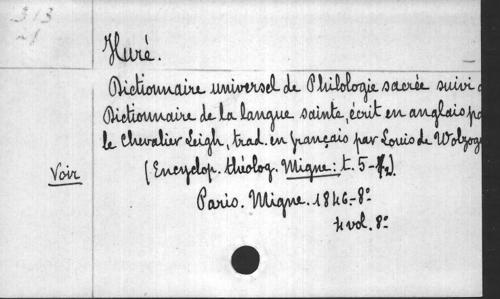 313
Huré.
Dictionnaire universel de Philologie sacrée suivi
Dictionnaire de la langue sainte, écrit en anglais
le Chevalier Leigh, trad. en français par Louis de Wolzog
Voir (Encyclop. théolog. Migne: t. 5-7).
Paris. Migne. 1846.-8°
4 vol. 8°